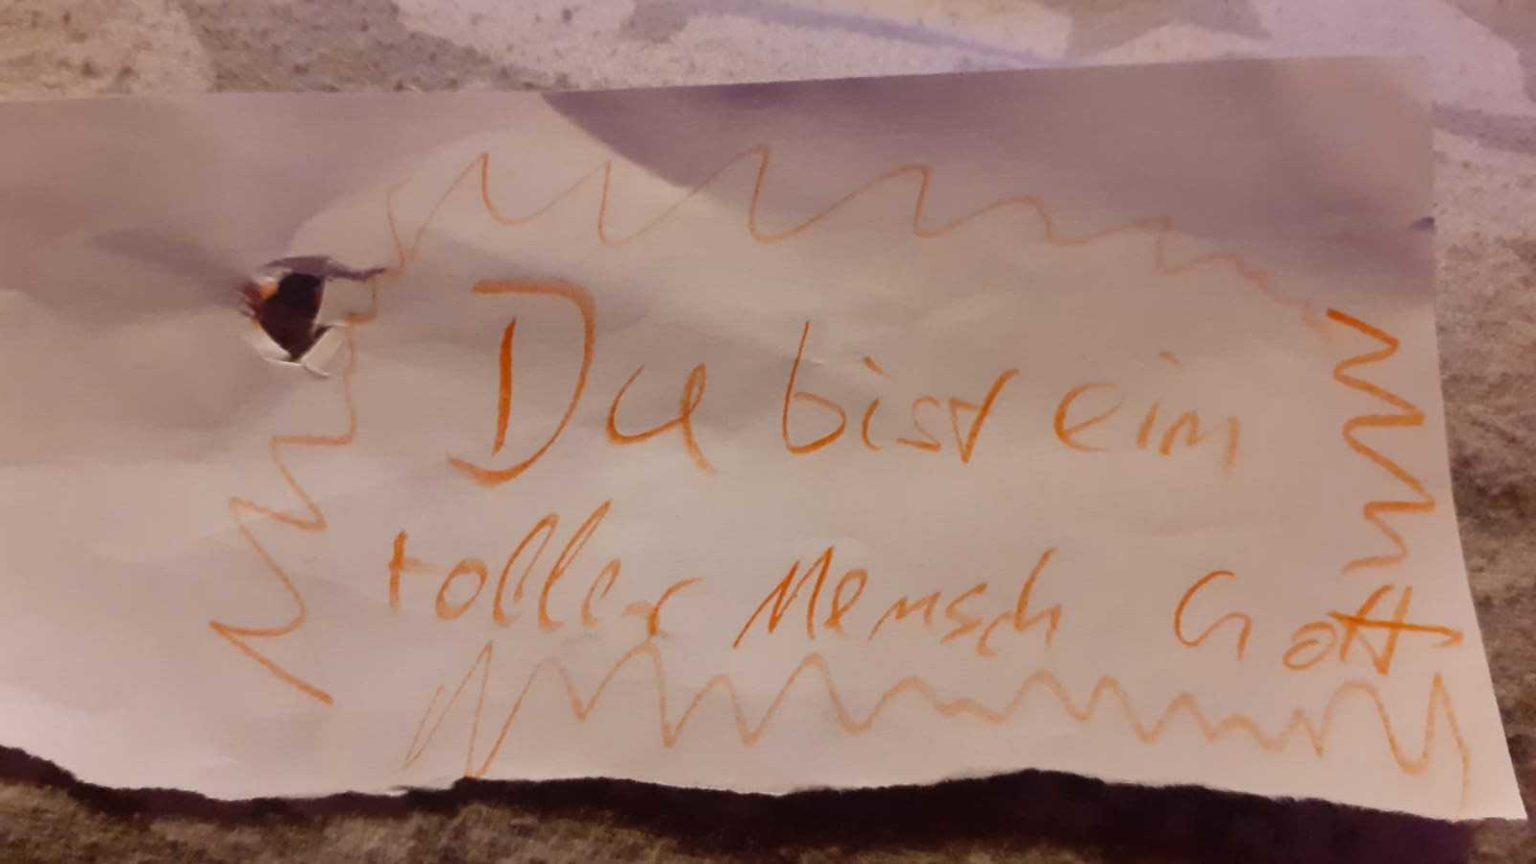 Du bist ein
toller Mensch Gott